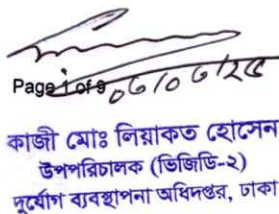 Page 1 of 9
কাজী মোঃ লিয়াকত হোসেন
উপপরিচালক (ভিজিডি-২)
দুর্যোগ ব্যবস্থাপনা অধিদপ্তর, ঢাকা